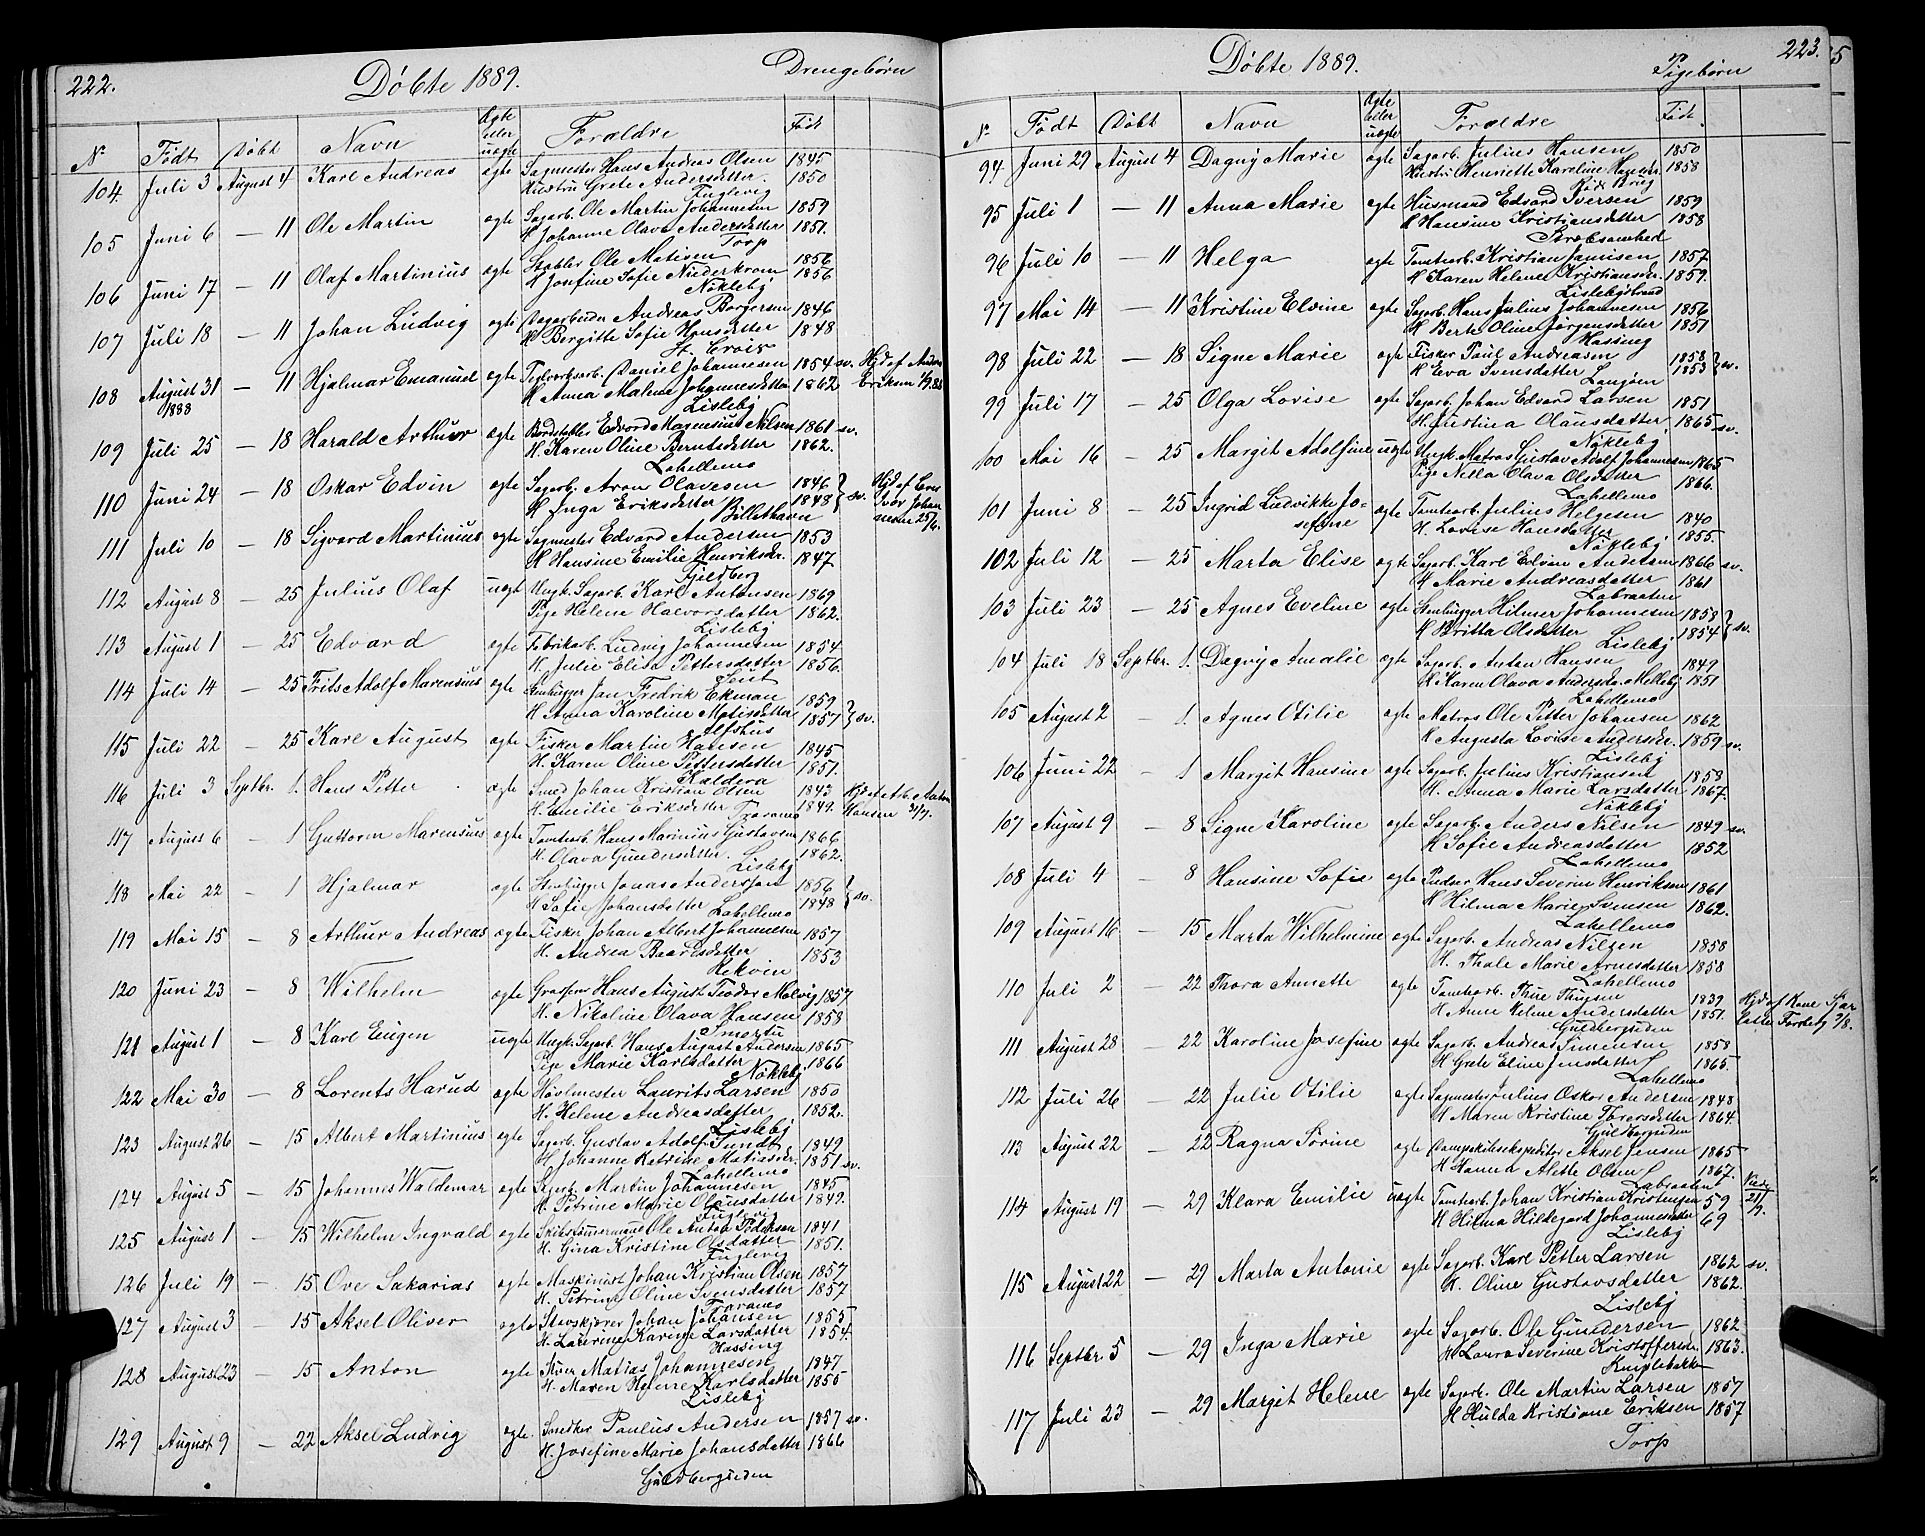 222.
Döbte 1889.
Drengebørn
Nº Født Döbt Navn Ægte eller uægte Forældre Født
104. Juli 3 August 4 Karl Andreas ægte Sagmester Hans Andreas Olsen 1845
Hustru Grete Andersdatter. 1850
Fuglevig
105 Juni 6 — 11 Ole Martin ægte Sagarb. Ole Martin Johannesen 1859
H Johanne Olava Andersdatter 1851.
Torp
106 Juni 17 — 11 Olaf Martinius ægte Stabler Ole Matisen 1856
H Josefine Sofie Niederkrom 1856
Nökleby
107 Juli 18 — 11 Johan Ludvig ægte Andreas Borgersen 1846
H Bergitte Sofie Hansdatter 1848
St. Croix
108 August 31 1888 — 11 Hjalmar Emanuel ægte Teglverksarb. Daniel Johannesen 1854 sv. Hjd af Anders
H Anna Malene Johannesdatter 1862 Eriksen 1/9.88
Lisleby
109 Juli 25 — 18 Harald Arthur ægte Bordstabler Edvard Magnusus Nilsen 1861 sv.
H. Karen Oline Berntsdatter 1862.
Lahellemo
110 Juni 24 — 18 Oskar Edvin ægte Sagarb. Aron Olavesen 1846 } sv. Hjd af
H Inga Eriksdatter 1848 Ivar Johan
Billethavn nesen 25/6.
111 Juli 10 — 18 Sigvard Martinius ægte Sagmester Edvard Andersen 1853
H Hansine Emilie Henriksdr. 1847
Fjeldberg
112 August 8 — 25 Julius Olaf uægt Ungk. Sagarb. Karl Antonsen 1869
Pige Helene Halvorsdatter 1862.
Lisleby
113 August 1 — 25 Edvard ægte Fabrikarb. Ludvig Johannesen 1854
H. Julie Elisa Pettersdatter 1856.
114 Juli 14 — 25 Frits Adolf Marensius ægte Stenhugger Jan Fredrik Ekman 1859 } sv.
H Anna Karoline Matisdatter 1857
Alfshus
115 Juli 22 — 25 Karl August ægte Fisker Martin Hansen 1845
H. Karen Oline Pettersdatter 1851.
Kaldera
116 Juli 3 Septbr. 1. Hans Petter ægte Smed Johan Kristian Olsen 1843 Hjd af Arb. Anton
H. Emilie Eriksdatter 1849. Hansen
Traramo
117 August 6 — 1 Guttorm Marensius ægte Tomtearb. Hans Marinius Gustavsen 1866
H. Olava Gundersdatter. 1862.
Lisleby
118 Mai 22 — 1 Hjalmar ægte Stenhugger Jonas Andersson 1856 } sv.
H Sofie Johansdatter 1848
Lahellemo
119 Mai 15 — 8 Arthur Andreas ægte Fisker Johan Albert Johannesen 1857
H. Andrea Baardsdatter 1853
Rekvin
120 Juni 23 — 8 Wilhelm ægte Hans August Teodor Molvig 1857
H. Nikoline Olava Hansen 1858
Smertu
121 August 1 — 8 Karl Eugen uægte Ungk. Sagarb. Hans August Andersen 1865
Pige Marie Karlsdatter 1866
Nökleby
122 Mai 30 — 8 Lorents Harud ægte Hövlmester Laurits Larsen 1850
H. Helene Andreasdatter 1852.
Lisleby
123 August 26 — 15 Albert Martinius ægte Sagarb. Gustav Adolf Sundt 1849
H Johanne Katrine Matiasdr. 1851 sv.
Lahellemo
124 August 5 — 15 Johannes Waldemar ægte Sagarb. Martin Johannesen 1845
H. Petrine Marie Olausdatter 1849.
Fuglevig
125 August 1 — 15 Wilhelm Ingvald ægte Skibstömmermand Ole Anton Pedersen 1841
H. Gina Kristine Olsdatter 1851.
Fuglevig
126 Juli 19 — 15 Ove Sakarias ægte Maskinist Johan Kristian Olsen 1857
H. Petrine Oline Svensdatter 1857
Traramo
127 August 3 — 15 Aksel Oliver ægte Stavskjærer Johan Johansen 1853
H. Laurine Karine Larsdatter 1854.
Hassing
128 August 23 — 15 Anton ægte Matias Johannesen 1847
H. Maren Helene Karlsdatter 1855
Lisleby
129 August 9 — 22 Aksel Ludvig ægte. Snedker Paulus Andersen 1857 sv.
H. Josefine Marie Johansdatter 1866
Guldbergseden
223.
Döbte 1889.
Pigebørn
Nº Født Döbt Navn Ægte eller uægte Forældre Født.
94 Juni 29 August 4 Dagny Marie ægte Sagarb. Julius Hansen 1850
Hustru Henriette Karoline Hansdr. 1858
95 Juli 1 — 11 Anna Marie ægte Husmand Edvard Iversen 1859
H Hansine Kristiansdatter 1858
96 Juli 10 — 11 Helga ægte Tomtearb. Kristian Jamisen 1857
H Karen Helene Kristiansdr. 1859.
Lislebystrand
97 Mai 14 — 11 Kristine Elvine ægte Sagarb. Hans Julius Johannesen 1856
H Berte Oline Jørgensdatter 1851
Hassing
98 Juli 22 — 18 Signe Marie ægte Fisker Paul Andreasen 1858 } sv.
H Eva Svensdatter 1853
Langøen
99 Juli 17 — 25 Olga Lovise ægte Sagarb. Johan Edvard Larsen 1851
H. Justina Olausdatter 1865 sv.
Nökleby
100 Mai 16 — 25 Margit Adolfine uægte Ungk. Matros Gustav Adolf Johannesen 1865
Pige Nella Olava Olsdatter 1866.
Lahellemo
101 Juni 8 — 25 Ingrid Ludvikke Jo- ægte Tomtearb. Julius Helgesen 1840
sefine H. Lovise Hansdatter 1855.
Nökleby
102 Juli 12 — 25 Marta Elise ægte Sagarb. Karl Edvin Andersen 1866 sv.
H Marie Andreasdatter 1861
Labraaten
103 Juli 23 — 25 Agnes Eveline ægte Stenhugger Hilmer Johannesen 1858 } sv.
H Britta Olsdatter 1854
Lisleby
104 Juli 18 Septbr. 1. Dagny Amalie ægte Sagarb. Anton Hansen 1849
H. Karen Olava Andersdr. Melleby 1851
Lahellemo
105 August 2 — 1. Agnes Otilie ægte Matros Ole Petter Johansen 1862
H Augusta Lovise Andersdr. 1859 sv.
Lisleby
106 Juni 22 — 1 Margit Hansine ægte Sagarb. Julius Kristiansen 1858
H. Anna Marie Larsdatter 1867.
Nökleby
107 August 9 — 8 Signe Karoline ægte Sagarb. Anders Nilsen 1849 sv.
H Sofie Andreasdatter 1852
Lahellemo
108 Juli 4 — 8 Hansine Sofie ægte Pudser Hans Severin Henriksen 1861
H Hilma Marie Svensen 1862.
Lahellemo
109 August 16 — 15 Marta Wilhelmine ægte Sagarb. Andreas Nilsen 1858
H. Thale Marie Arnesdatter 1858
Lahellemo
110 Juli 2 — 22 Thora Annette ægte Tomtearb. Thue Thuesen 1839 Hjd af Kone
H Anne Helene Andersdatter 1851. Forsberg 2/8.
Guldbergseden
111 August 28 — 22 Karoline Josefine ægte Sagarb. Andreas Simensen 1858
H Grete Eline Jensdatter 1865.
Lahellemo
112 Juli 26 — 22 Julie Otilie ægte Sagmester Julius Oskar Andersen 1848
H Maren Kristine Thorersdatter 1864.
Guldbergseden
113 August 22 — 22 Ragna Sörine ægte Dampskibsekspeditør Aksel Jensen 1865
H Hanna Alette Olsen 1867.
Labraaten
114 August 19 — 29 Klara Emilie uægte Tomtearb. Johan Kristian Kristensen 59 21/9.
H Hilma Hildegard Johannesdatter 69
Lisleby
115 August 22 — 29 Marta Antonie ægte Sagarb. Karl Petter Larsen 1862 sv.
H. Oline Gustavsdatter 1862.
Lisleby
116 Septbr. 5 — 29 Inga Marie ægte Sagarb. Ole Gundersen 1862
H Laura Severine Kristoffersdr. 1863.
Kniplebakken
117 Juli 23 — 29 Margit Helene ægte Sagarb. Ole Martin Larsen 1857
H Hulda Kristiane Eriksen 1857
Torp